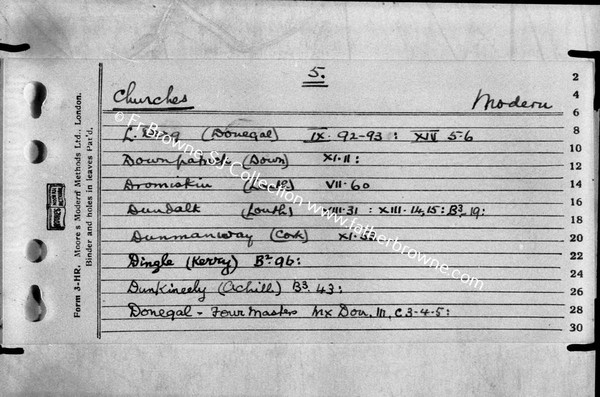 5.
Churches Modern
L. Derg (Donegal) IX. 92-93 : XIV 5-6
Downpatrick (Down) XI.11 :
Dromiskin VII.60
Dundalk (Louth) XIII.14,15: B3.19:
Dunmanway (Cork)
Dingle (Kerry) B2.96:
Dunkineely (Achill) B3.43:
Donegal - Four Masters Mx Don. III, C3-4-5:
2
4
6
8
10
12
14
16
18
20
22
24
26
28
30
Form 3-HR. Moore's Modern Methods Ltd., London.
Binder and holes in leaves Pat'd.
© Fr Browne SJ Collection www.fatherbrowne.com